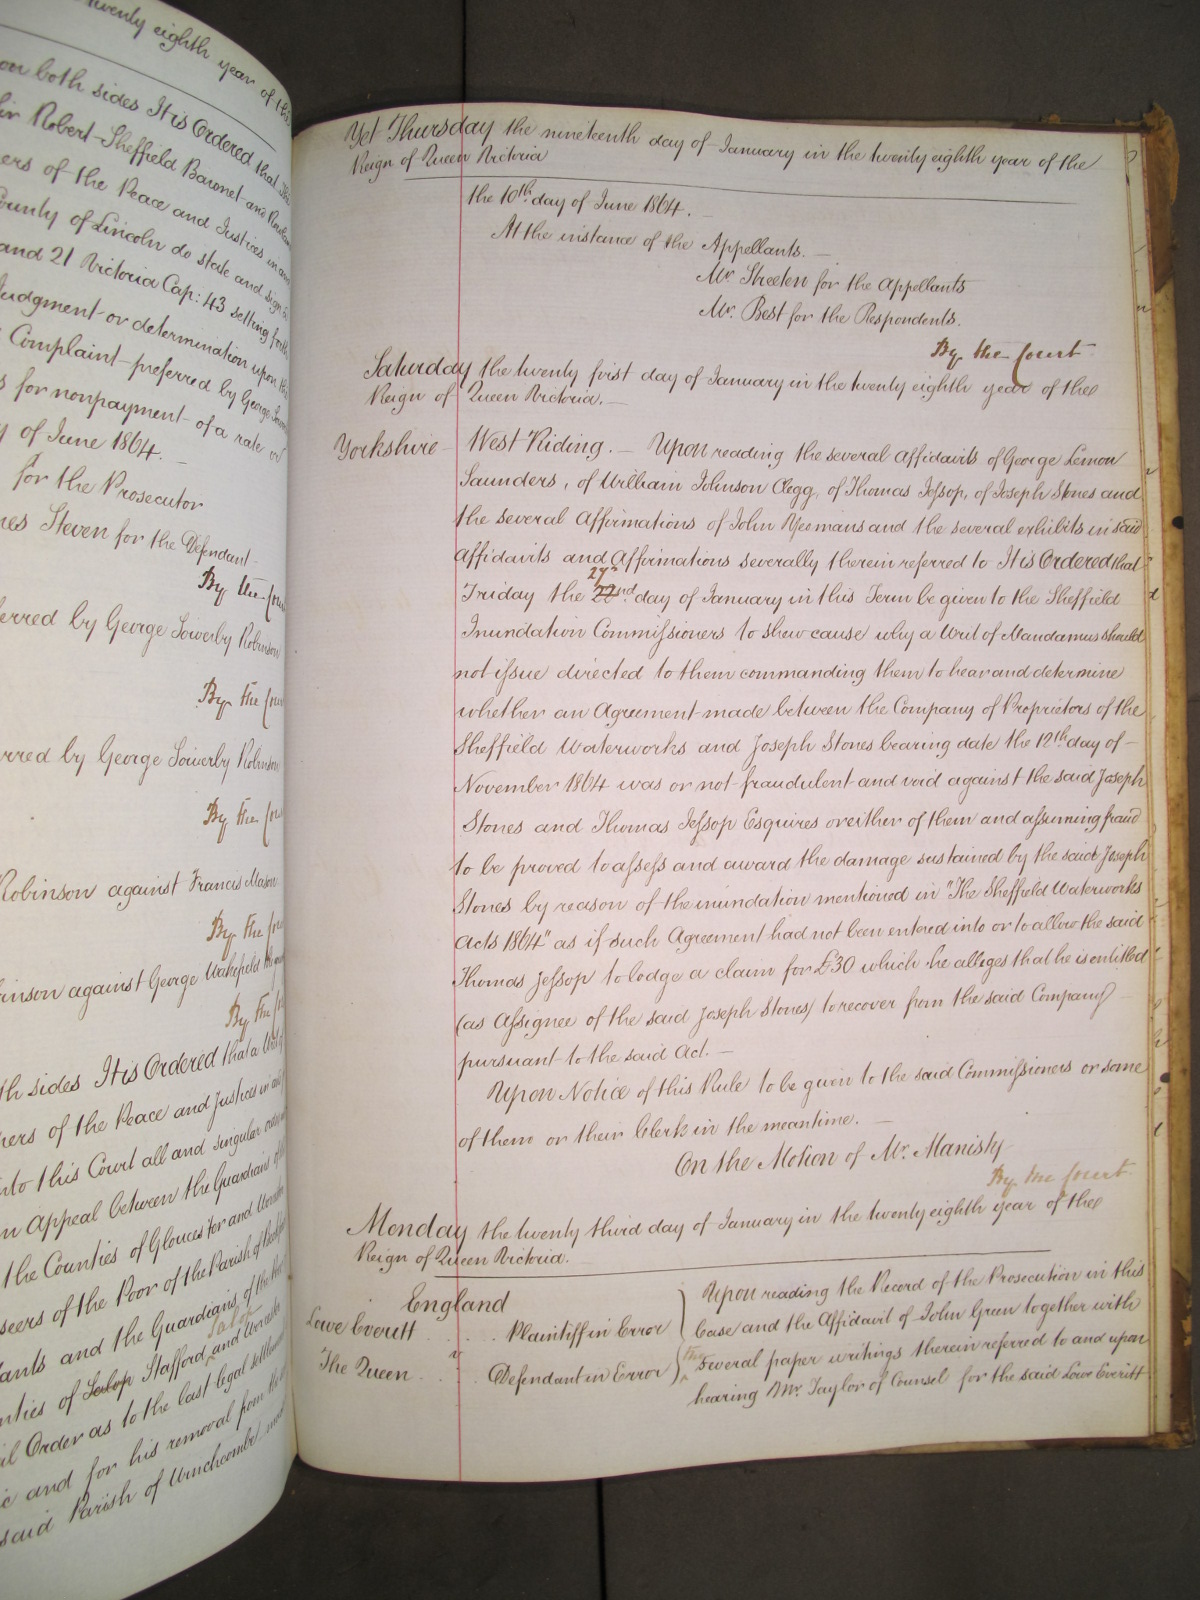 twenty eighth year of the
on both sides It is Ordered that
Sir Robert Sheffield Baronet and
ers of the Peace and Justices in and
County of Lincoln do state and sign
and 21 Victoria Cap: 43 setting forth
Judgment or determination upon the
Complaint preferred by George
s for nonpayment of a rate
of June 1864.
for the Prosecutor
nes Steven for the Defendant
By the Cou
erred by George Sowerby Robinson
By the Cou
rred by George Sowerby Robinson
By the Cou
Robinson against Francis Mason
By the Cou
inson against George Wakefield
By the
th sides It is Ordered that a Writ
pers of the Peace and Justices in
nto this Court all and singular
n Appeal between the Guardians
the Counties of Gloucester and Worcester
seers of the Poor of the Parish of
ants and the Guardians of the
Salop
nties of Salop Stafford and Worcester
il Order as to the last legal settlement
ic and for his removal from the
said Parish of Winchcombe
Yet Thursday the nineteenth day of January in the twenty eighth year of the
Reign of Queen Victoria
the 10th day of June 1864. —
At the instance of the Appellants. —
Mr. Streeten for the Appellants
Mr. Best for the Respondents.
By the Court
Saturday the twenty first day of January in the twenty eighth year of the
Reign of Queen Victoria. —
Yorkshire — West Riding. — Upon reading the several Affidavits of George Lemon
Saunders, of William Johnson Clegg, of Thomas Jessop, of Joseph Stones and
the several Affirmations of John Yeomans and the several exhibits in said
Affidavits and Affirmations severally therein referred to It is Ordered that
27th
Friday the 22nd day of January in this Term be given to the Sheffield
Inundation Commissioners to shew cause why a Writ of Mandamus should
not issue directed to them commanding them to hear and determine
whether an Agreement made between the Company of Proprietors of the
Sheffield Waterworks and Joseph Stones bearing date the 12th day of —
November 1864 was or not fraudulent and void against the said Joseph
Stones and Thomas Jessop Esquires or either of them and assuming fraud
to be proved to assess and award the damage sustained by the said Joseph
Stones by reason of the inundation mentioned in "The Sheffield Waterworks
Acts 1864" as if such Agreement had not been entered into or to allow the said
Thomas Jessop to lodge a claim for £30 which he alleges that he is entitled
(as Assignee of the said Joseph Stones) to recover from the said Company
pursuant to the said Act. —
Upon Notice of this Rule to be given to the said Commissioners or some
of them or their Clerk in the meantime. —
On the Motion of Mr. Manisty
By the Court
Monday the twenty third day of January in the twenty eighth year of the
Reign of Queen Victoria.
England
Lowe Everitt . . . . Plaintiff in Error
v
The Queen . . . Defendant in Error
Upon reading the Record of the Prosecution in this
Case and the Affidavit of John Green together with
the
several paper writings therein referred to and upon
hearing Mr. Taylor of Counsel for the said Lowe Everitt